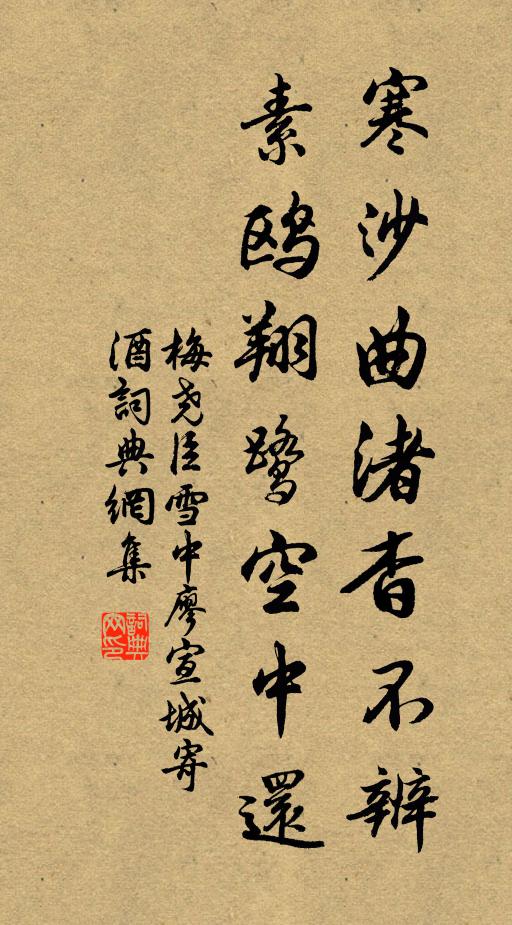 寒沙曲渚杳不辨
素鸥翔鹭空中還
梅尧臣雪中廖宣城寄
酒詞典網集
詞典
网印